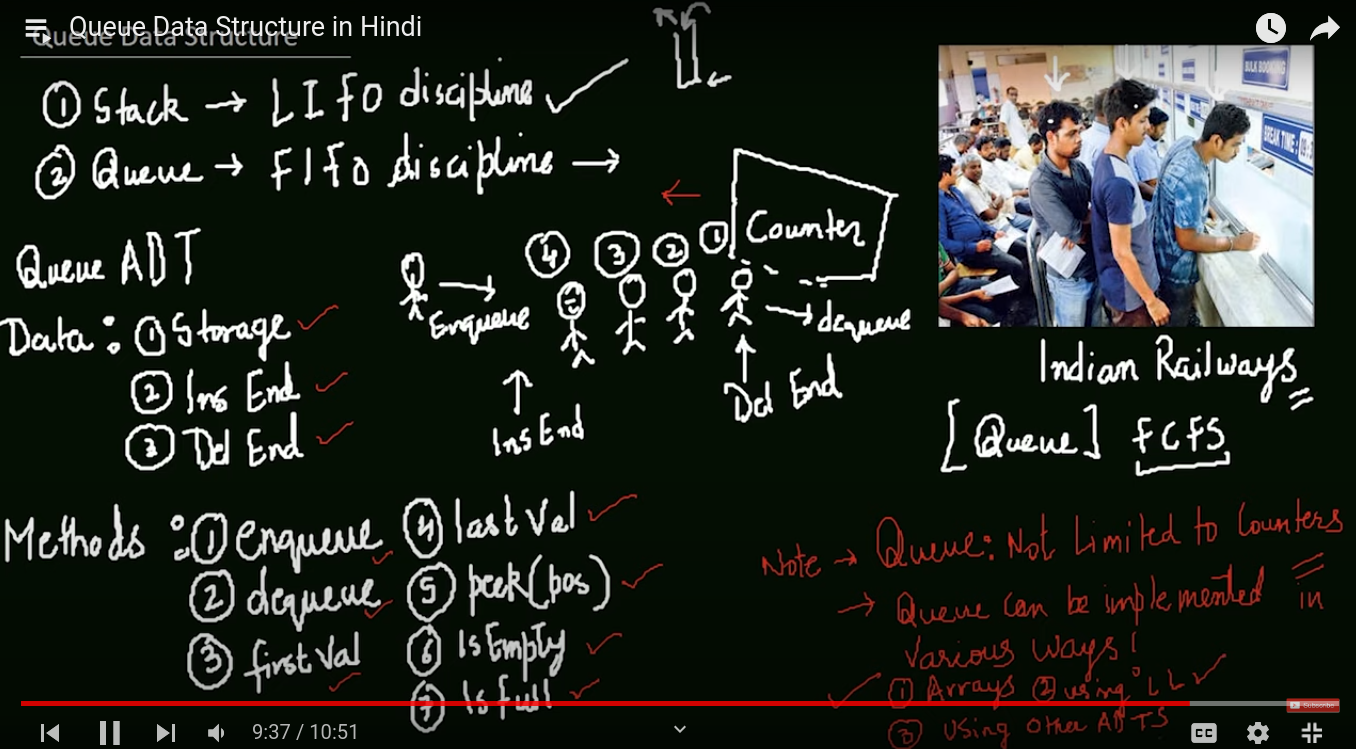 Queue Data Structure in Hindi
Queue Data Structure
① Stack → LIFO discipline ✓
② Queue → FIFO discipline →
BULK BOOKING
BREAK TIME:
Queue ADT
④ ③ ② ① Counter
Enqueue
dequeue
Data: ① Storage ✓
② Ins End ✓
③ Del End ✓
Ins End
Del End
Indian Railways
[Queue] FCFS
Methods: ① enqueue ✓
② dequeue ✓
③ firstVal ✓
④ lastVal ✓
⑤ peek(pos) ✓
⑥ IsEmpty ✓
⑦ Isfull ✓
Note → Queue: Not Limited to Counters
→ Queue can be implemented in
various ways!
✓ ① Arrays ② using LL ✓
③ Using Other ADTS
Subscribe
9:37 / 10:51
CC